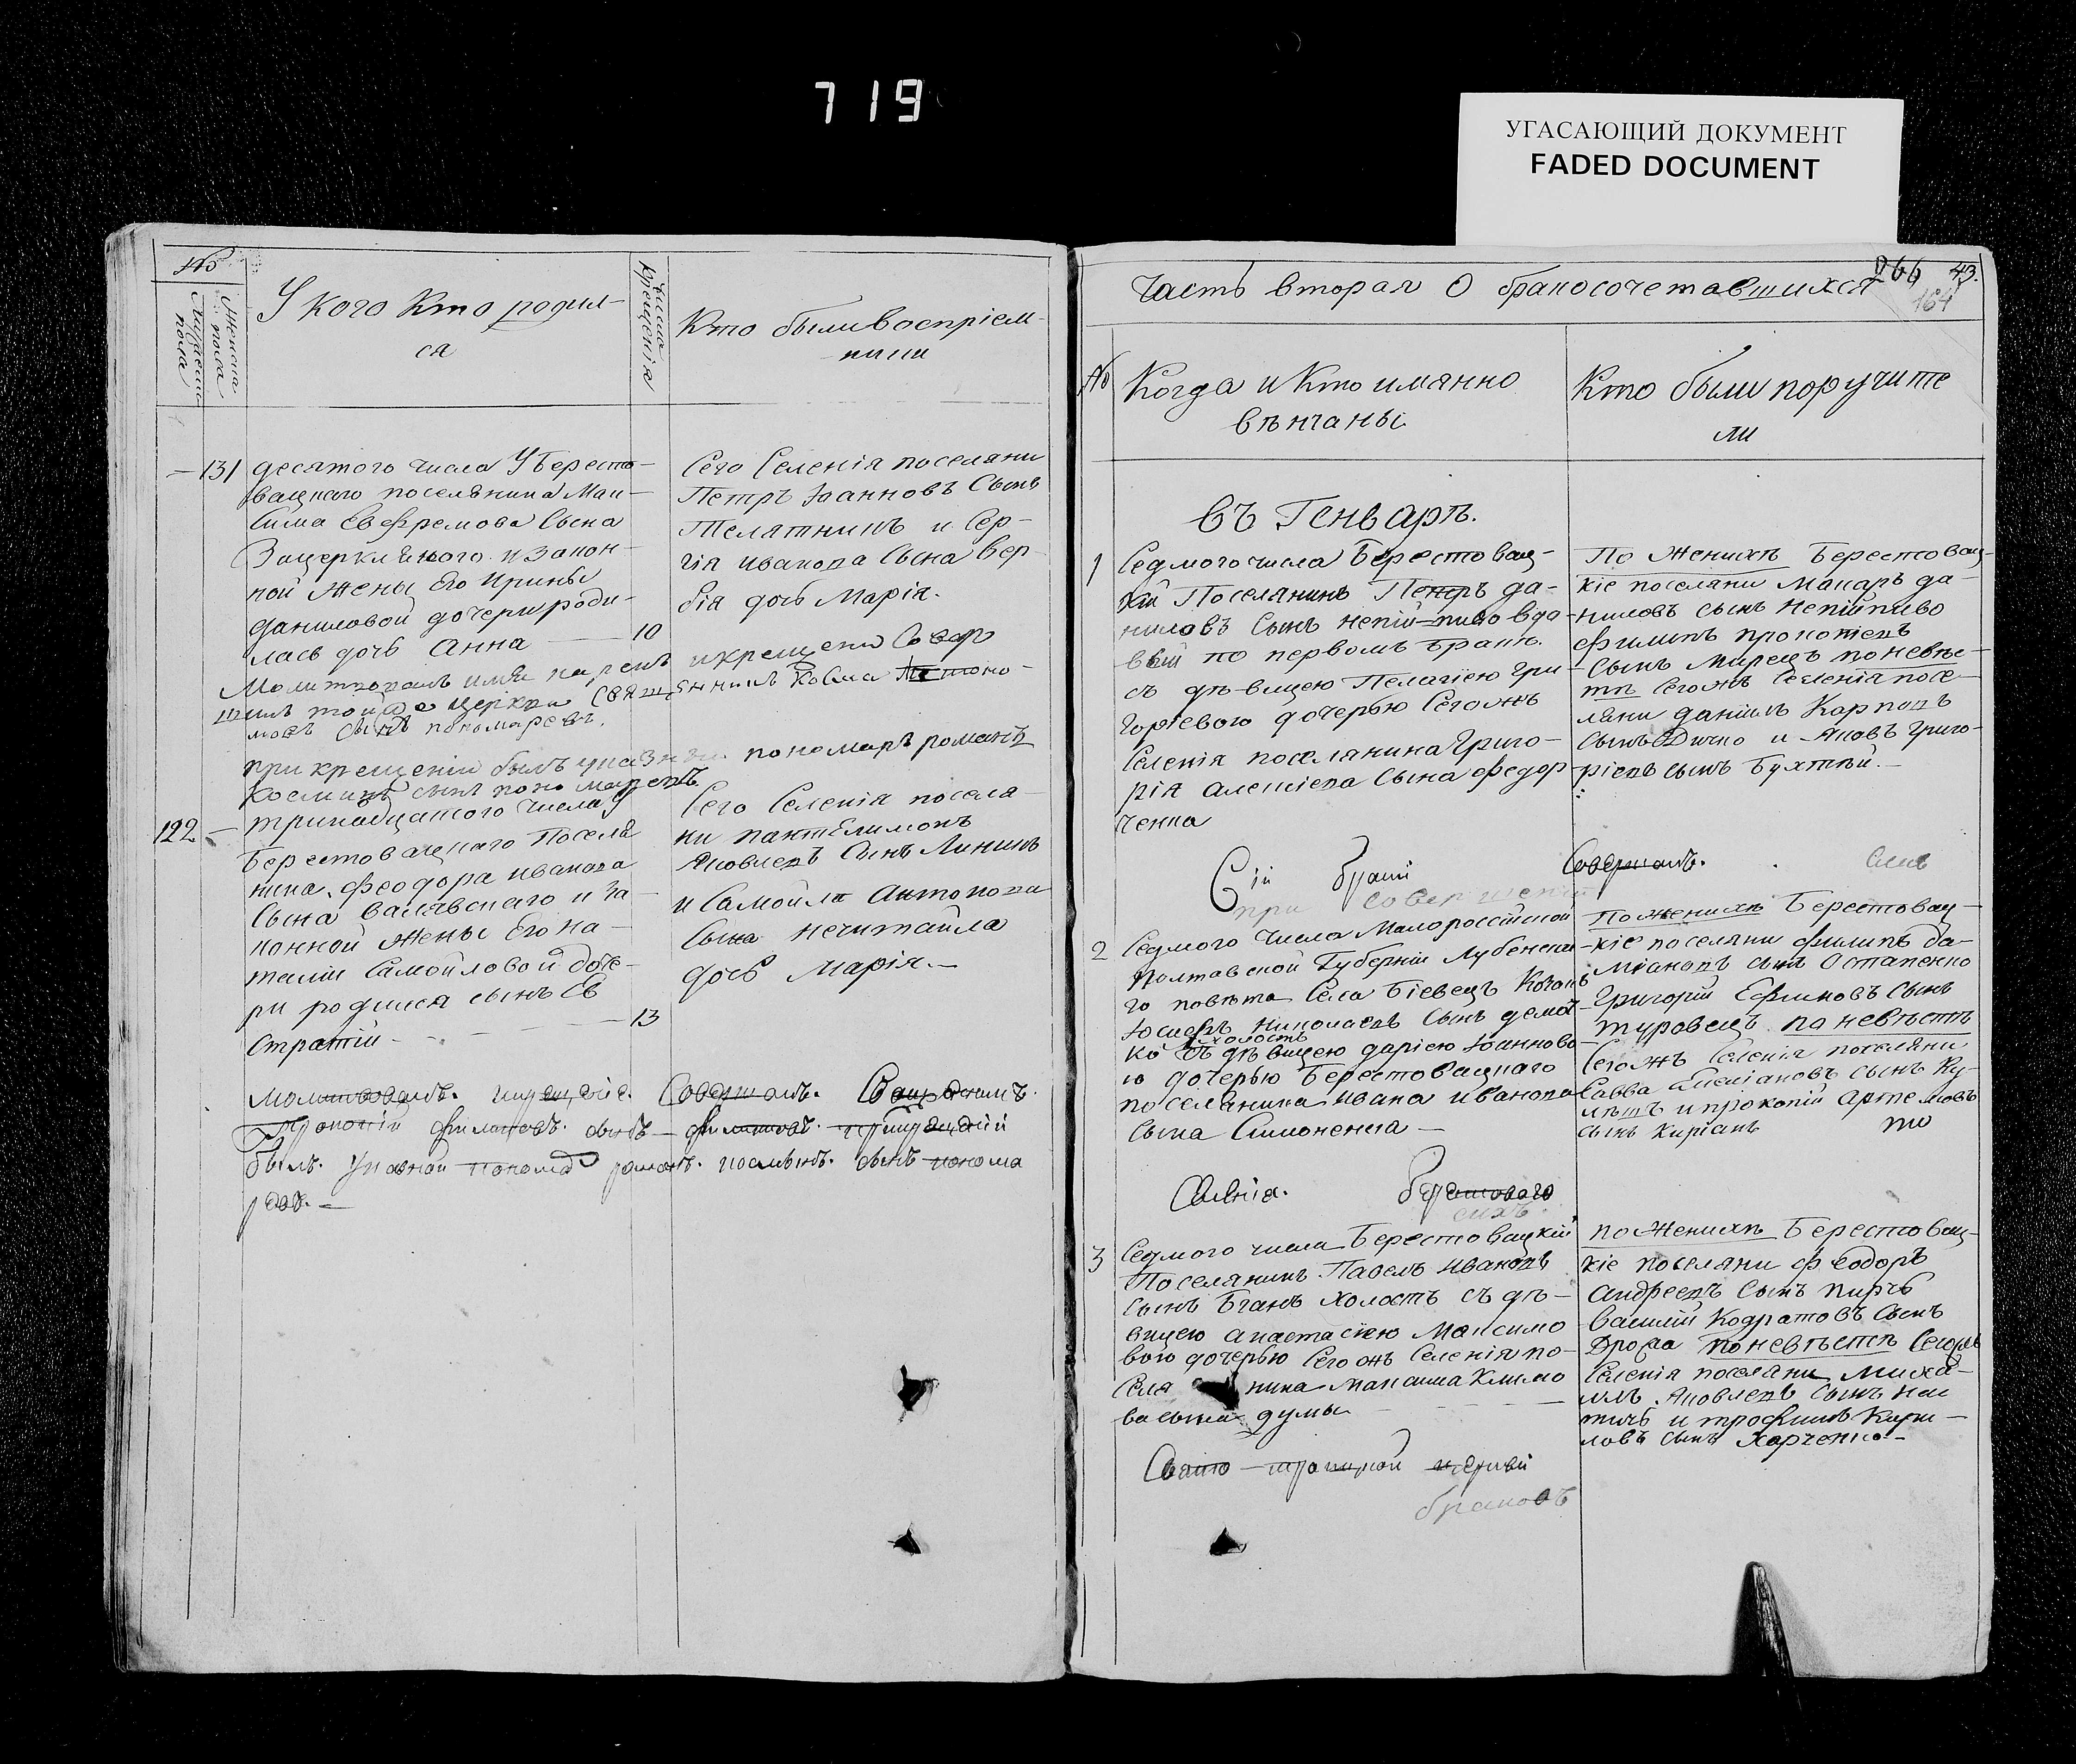 719
УГАСАЮЩИЙ ДОКУМЕНТ
FADED DOCUMENT
№
Мужеска пола
Женска пола
У кого кто родил-
ся
Числа крещенія
Кто были воспріем-
ники
— 131
десятого числа У Бересто-
вацкого поселянина Мак-
сима Евфремова Сына
и закон-
ной жены Его Ирины
Даниловой дочери роди-
лась дочь Анна — 10
Сего Селенія поселяни
Петръ Іоанновъ Сынъ
Телятникъ и Сер-
гія Иванова Сына Вер-
бія дочь Марія.
Молитвовалъ имя нарекъ и крещеніе Совер
шилъ тоя церкви Священникъ Косма
сынъ пономаревъ.
при крещеніи былъ указный пономаръ романъ
Косминъ сынъ пономаревъ
122 —
тринадцатого числа у
Берестовацкаго Поселя
нина Феодора иванова
Сына Валявскаго и за
конной жены Его На-
таліи Самойловой доче-
ри родился сынъ Ев
стратій — 13
Сего Селенія поселя-
ни пантелимонъ
Яковлевъ Сынъ Линикъ
и Самойла Антонова
Сына нечитайла
дочь Марія.—
Молитвовалъ. и крещеніе. Совершалъ. Священникъ.
Прокопій филиповъ. сынъ филиповъ. при крещеніи
былъ. Указной пономар романъ. косминъ. сынъ понома
ревъ. —
Часть вторая О бракосочетавшихся
266
43.
164
№
Когда и кто имянно
вѣнчаны
Кто были поручите
ли
Въ Генварѣ.
1
Седмого числа Берестовац-
кій Поселянинъ Петръ Да-
ниловъ Сынъ непій-пиво вдо-
вый по первомъ бракѣ.
съ дѣвицею Пелагіею Гри
горіевою дочерью Сегожъ
Селенія поселянина Григо-
рія Алексіева Сына Федор
ченка
По Женихѣ Берестовац-
кіе поселяни Макаръ Да-
ниловъ сынъ непійпиво
Филипъ прокопіевъ
Сынъ Мирецъ по невѣс-
тѣ Сегожъ Селенія посе-
ляни Даніилъ Карповъ
Сынъ и Яковъ Григо-
ріевъ сынъ Бухтѣй.—
Сій браки
Совершалъ.
при совершеніи
2
Седмого Числа Малороссійской
Полтавской Губерніи Лубенска
го повѣта Села Біевецъ Козакъ
Іосифъ Николаевъ Сынъ
холостъ
съ дѣвицею Даріею Іоанново
ю дочерью Берестовацкаго
поселянина Ивана Иванова
Сына Симоненка —
По женихѣ Берестовац-
кіе поселяни Филипъ Да-
міановъ сынъ Остапенко
Григорій Ефимовъ Сынъ
туровецъ по невѣстѣ
Сегожъ Селенія поселяни
Савва Сынъ Ку-
и прокопій Артемовъ
сынъ Киріакъ
то
Селенія.
берестового
сихъ
3
Седмого числа Берестовацкій
Поселянинъ Павелъ Ивановъ
Сынъ Бганъ Холостъ съ дѣ-
вицею Анастасіею Максимо
вою дочерью Сегожъ Селенія по-
селянина Максима Климо
ва сына думы
по Женихѣ Берестовац-
кіе поселяни Феодоръ
Андреевъ Сынъ
Василій Кодратовъ Сынъ
по невѣстѣ Сегожъ
Селенія поселяни Миха-
илъ Яковлевъ Сынъ
и трофимъ Кири-
ловъ сынъ Харченко —
Свято-троицкой церкви
браковъ